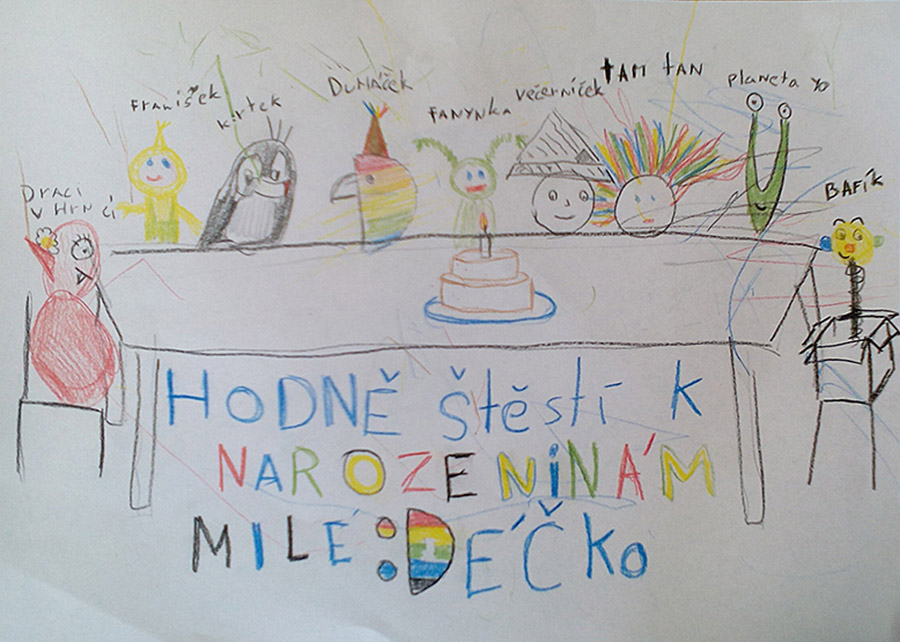 Franišek
krtek
Dumáček
fanynka
večerníček
tam tan
planeta yo
Draci
v Hrnci
BAFÍK
HODNĚ štěstí k
NAROZENINÁM
MILÉ :DÉČko